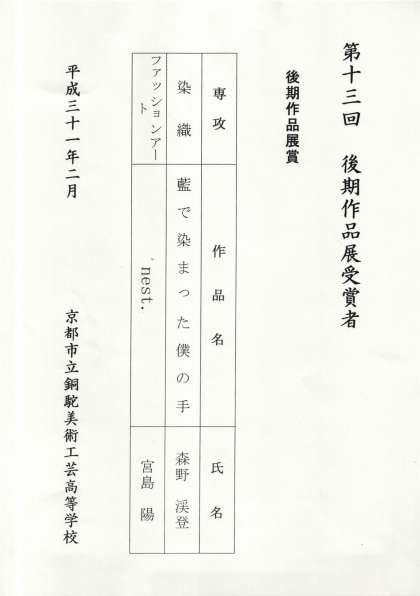 第十三回　後期作品展受賞者
後期作品展賞
専攻　作品名　氏名
染織　藍で染まった僕の手　森野　渓登
ファッションアート　゛nest.　宮島　陽
平成三十一年二月　京都市立銅駝美術工芸高等学校